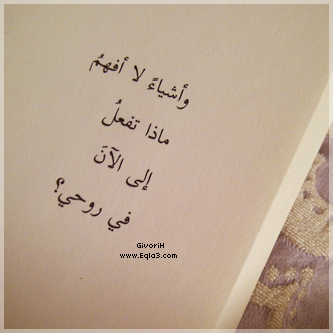 وأشياءً لا أفهمُ
ماذا تفعلُ
إلى الآنَ
في روحي؟
GivoriH
www.Eqla3.com